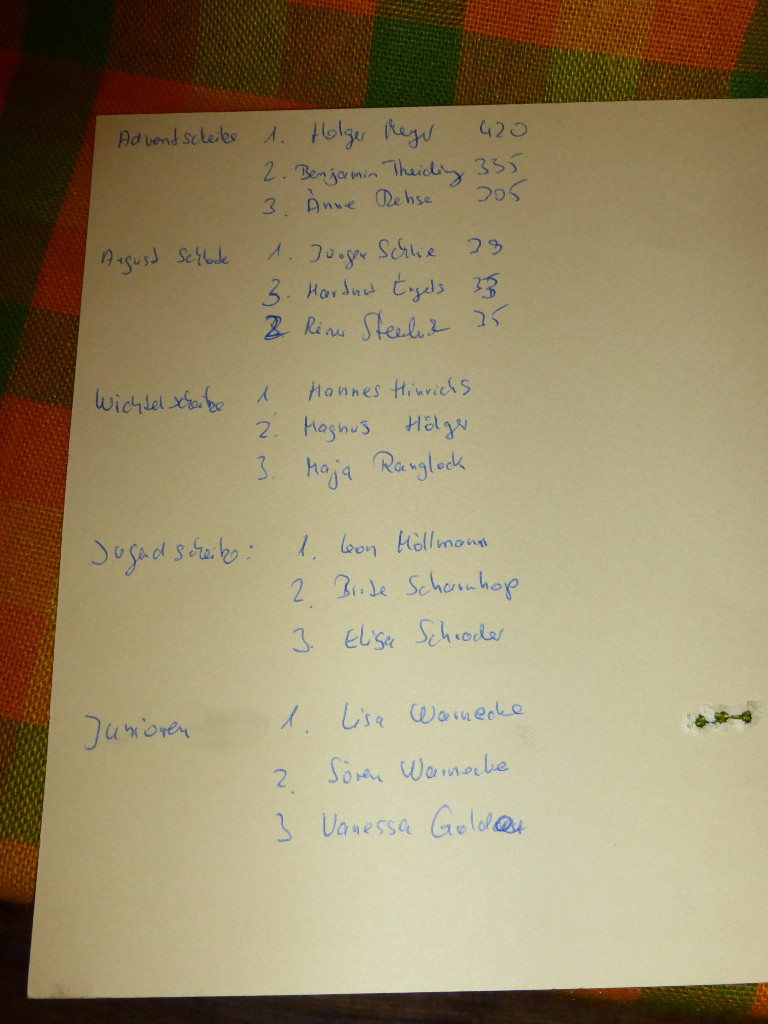 Adventscheibe 1. Holger Meyer 420
2. Benjamin Theiding 335
3. Änne Rehse 305
August 1. Jürgen Schlie 39
3. Hartmut Engels
2 Reiner 35
Wichtelscheibe 1 Hannes Hinrichs
2. Magnus Höiger
3. Maja Ranglack
Jugendscheibe: 1. Leon Höllmann
2. Birte Scharnhop
3. Elisa Schröder
Junioren 1. Lisa Warnecke
2. Sören Warnecke
3 Vanessa